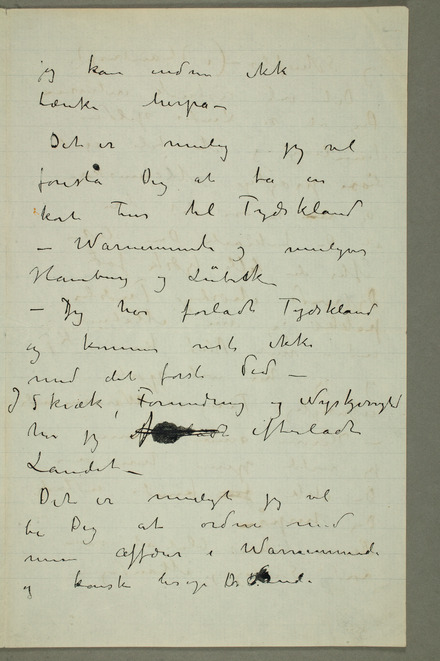 jeg kan endnu ikke
tænke herpå –
Det er mulig jeg vil
foreslå Dig at ta en
kort Tur til Tydskland
– Warnemünde og muligens
Hamburg og Lübeck
– Jeg har forladt Tydskland
og kommer visst ikke
med det første did –
I Skræk, Forundring og Nysgjerrighed
har jeg efterladt
Landet –
Det er muligt jeg vil
be Dig at ordne med
mine affærer i Warnemünde
og kanske besøge Dr